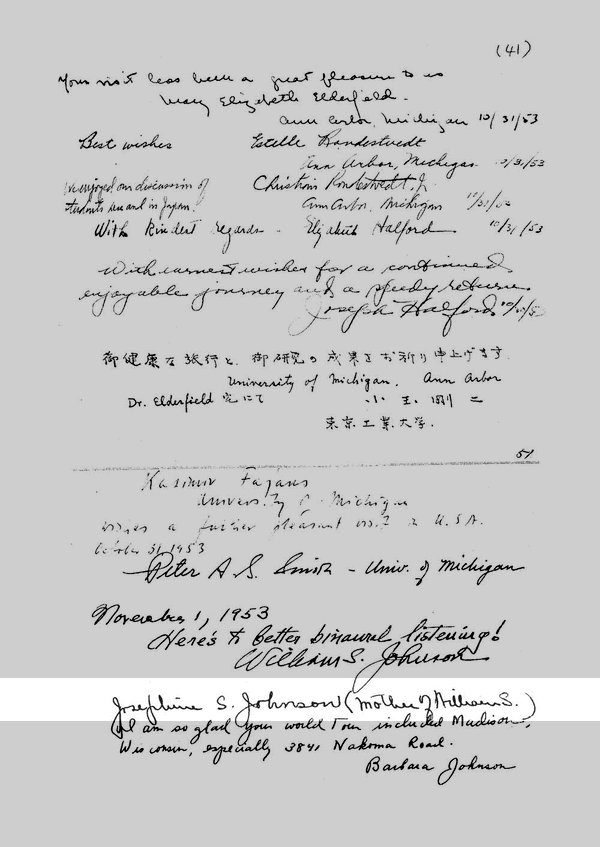 (41)
Your visit has been a great pleasure to us
Mary Elizabeth Elderfield.
Ann Arbor, Michigan 10/31/53
Best wishes Estelle Rondestvedt
Ann Arbor, Michigan 10/31/53
We enjoyed our discussion of Christian Rondestvedt, Jr.
students here and in Japan. Ann Arbor, Michigan 10/31/53
With kindest regards - Elizabeth Halford 10/31/53
With earnest wishes for a continued
enjoyable journey and a speedy return.
Joseph Halford 10/31/53
御健康な旅行と、御研究の成果をお祈り申上げます.
University of Michigan, Ann Arbor
Dr. Elderfield 宅にて 小玉剛二
東京工業大学.
51
Kasimir Fajans
University of Michigan
wishes a further pleasant visit in U.S.A.
October 31, 1953
Peter A. S. Smith - Univ. of Michigan
November 1, 1953
Here's to better binaural listening!
William S. Johnson
Josephine S. Johnson (Mother of William S.)
I am so glad your world tour included Madison,
Wisconsin, especially 3841 Nakoma Road.
Barbara Johnson